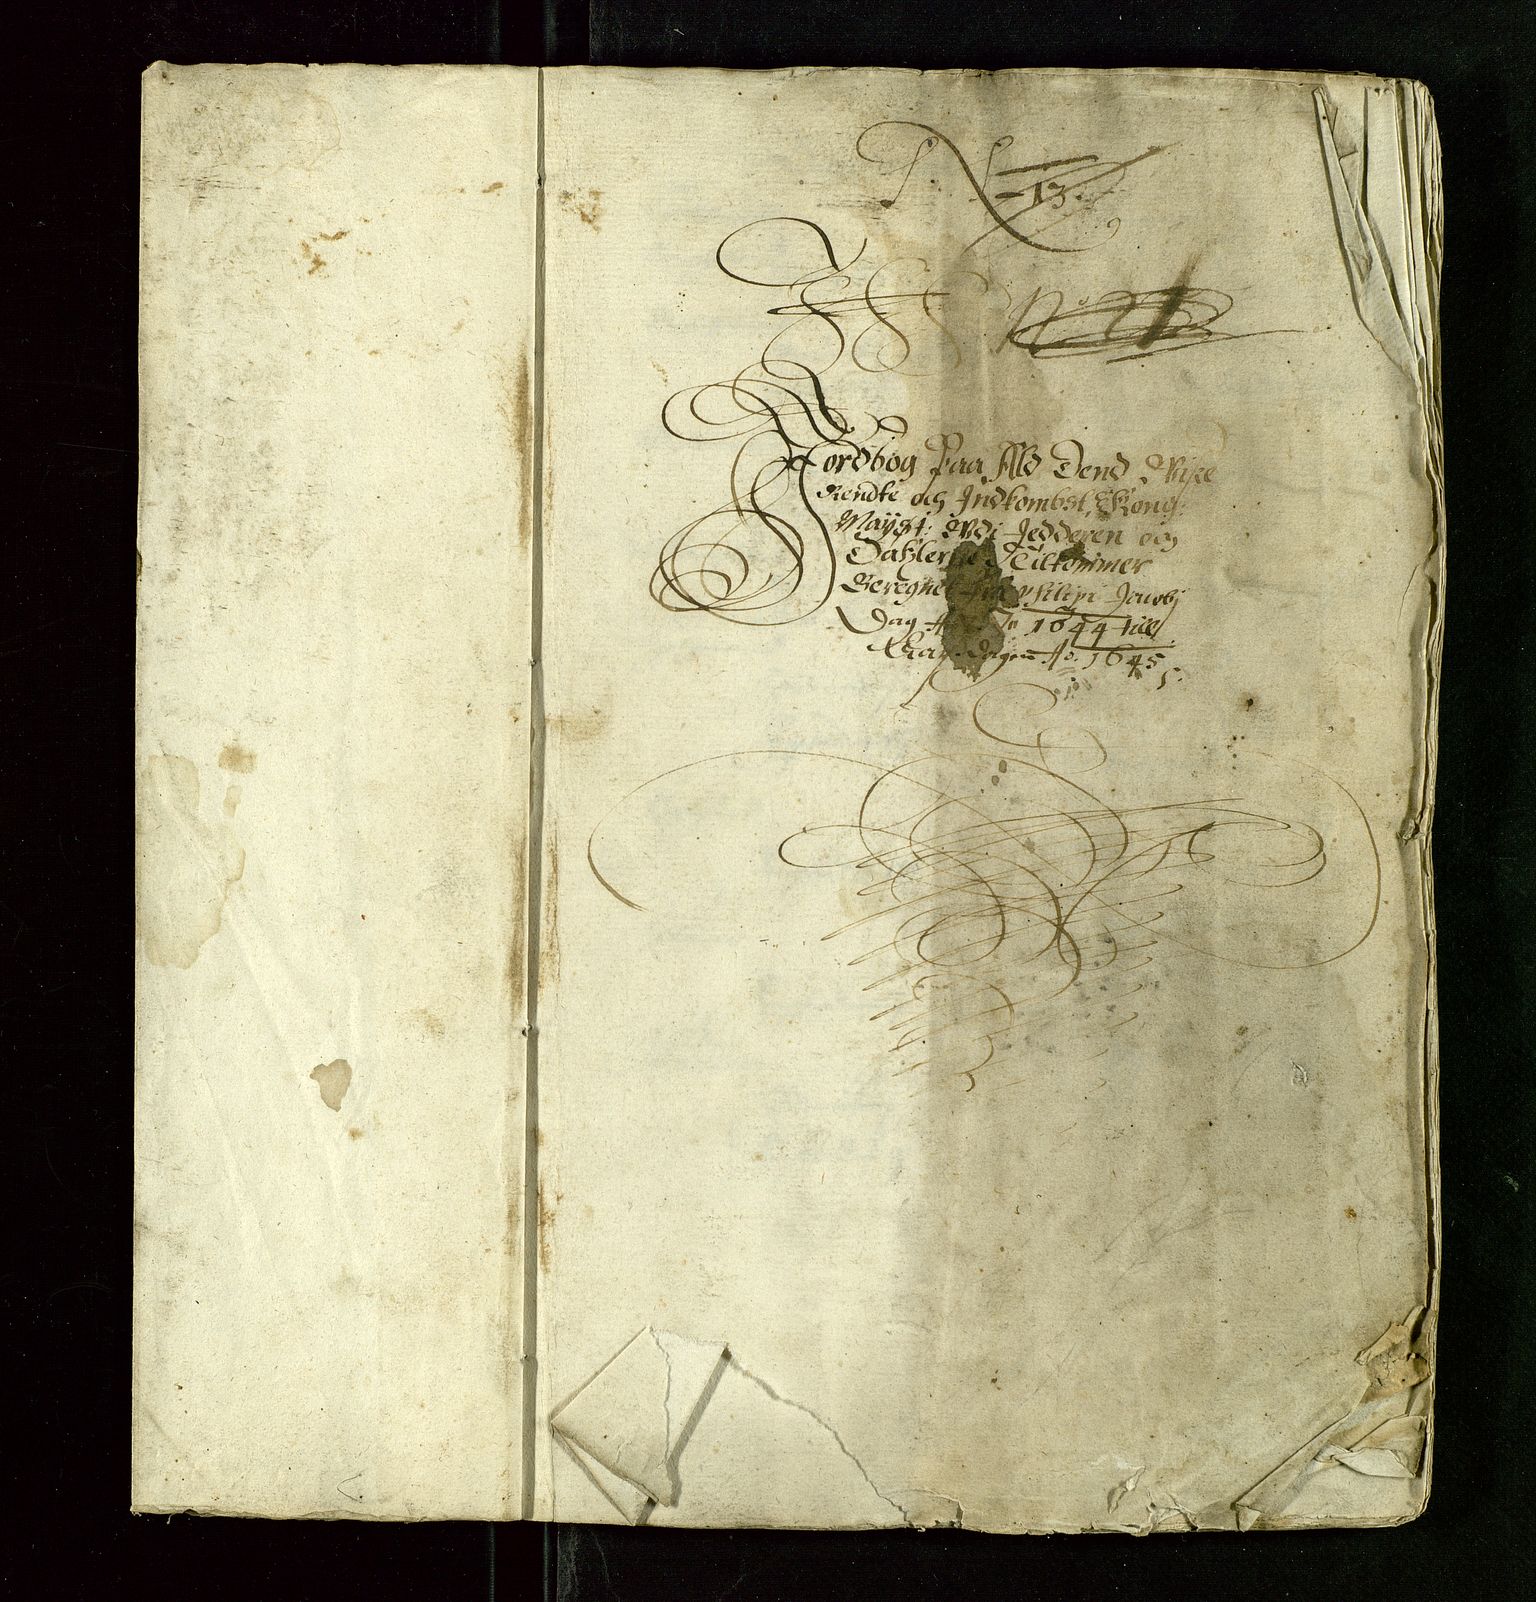 N 13.
No
Jordbog paa Ald Dend Visse
Rendte och Indkombst, Kong:
Mayst: Udi Jedderen och
Dahlerne Tilkommer
Beregnet fra philipi Jacobj
Dag Ao 1644 till
dagen Ao. 1645